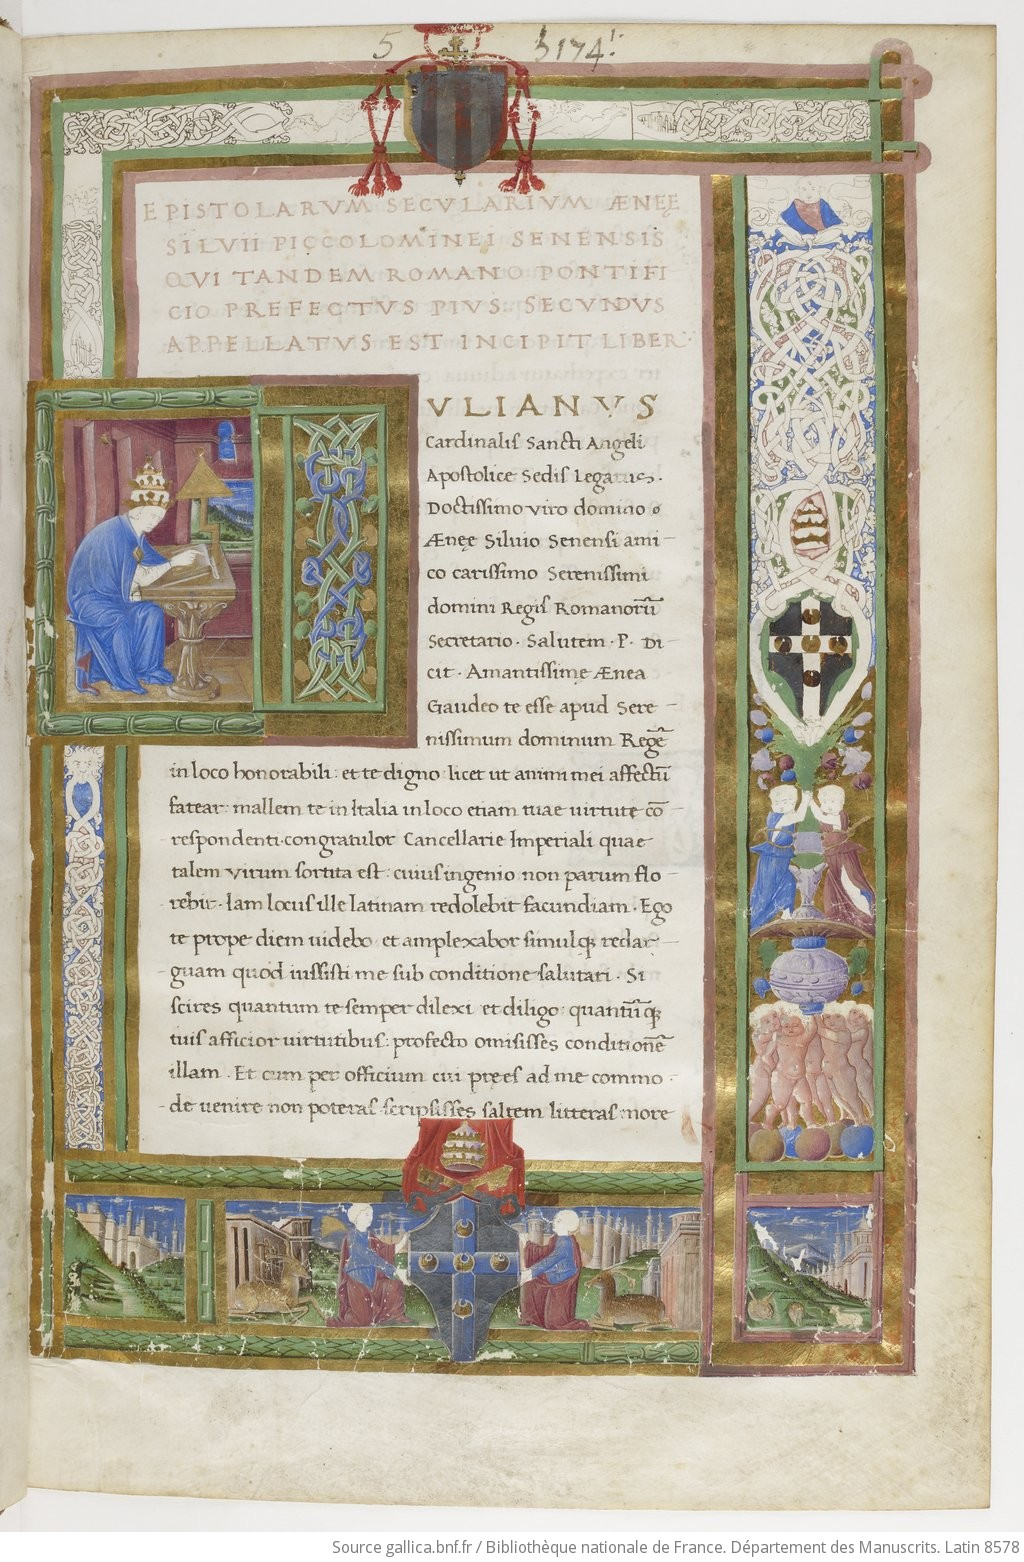 5 3174
EPISTOLARVM SECVLARIVM ÆNĘE
SILVII PICCOLOMINEI SENENSIS
QVI TANDEM ROMANO PONTIFI
CIO PREFECTVS PIVS SECVNDVS
APPELLATVS EST INCIPIT LIBER·
IVLIANVS
Cardinalis Sancti Angeli
Apostolice Sedis Legatus·
Doctissimo viro domino
Ænęe Siluio Senensi ami
co carissimo Serenissimi
domini Regis Romanorū
Secretario· Salutem· P· Di
cit· Amantissimę Ænea
Gaudeo te esse apud Sere
nissimum dominum Regē
in loco honorabili: et te digno: licet ut animi mei affectū
fatear: mallem te in Italia in loco etiam tuae virtute cō
respondenti· congratulor Cancellarie Imperiali quae
talem virum sortita est: cuius ingenio non parum flo
rebit· Iam locus ille latinam redolebit facundiam· Ego
te prope diem uidebo: et amplexabor simulqȝ redar
guam quod iussisti me sub conditione salutari· Si
scires quantum te semper dilexi et diligo: quantūqȝ
tuis afficior uirtutibus: profecto omisisses conditionē
illam· Et cum per officium cui pręes ad me commo
de uenire non poteras scripsisses saltem litteras more
Source gallica.bnf.fr / Bibliothèque nationale de France. Département des Manuscrits. Latin 8578